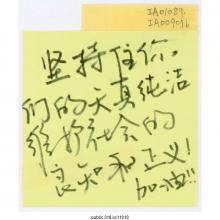 IA01089.
IA009076
坚持住你
们的天真纯洁
维护社会的
良知和正义!
加油!!
public.318.io/11919